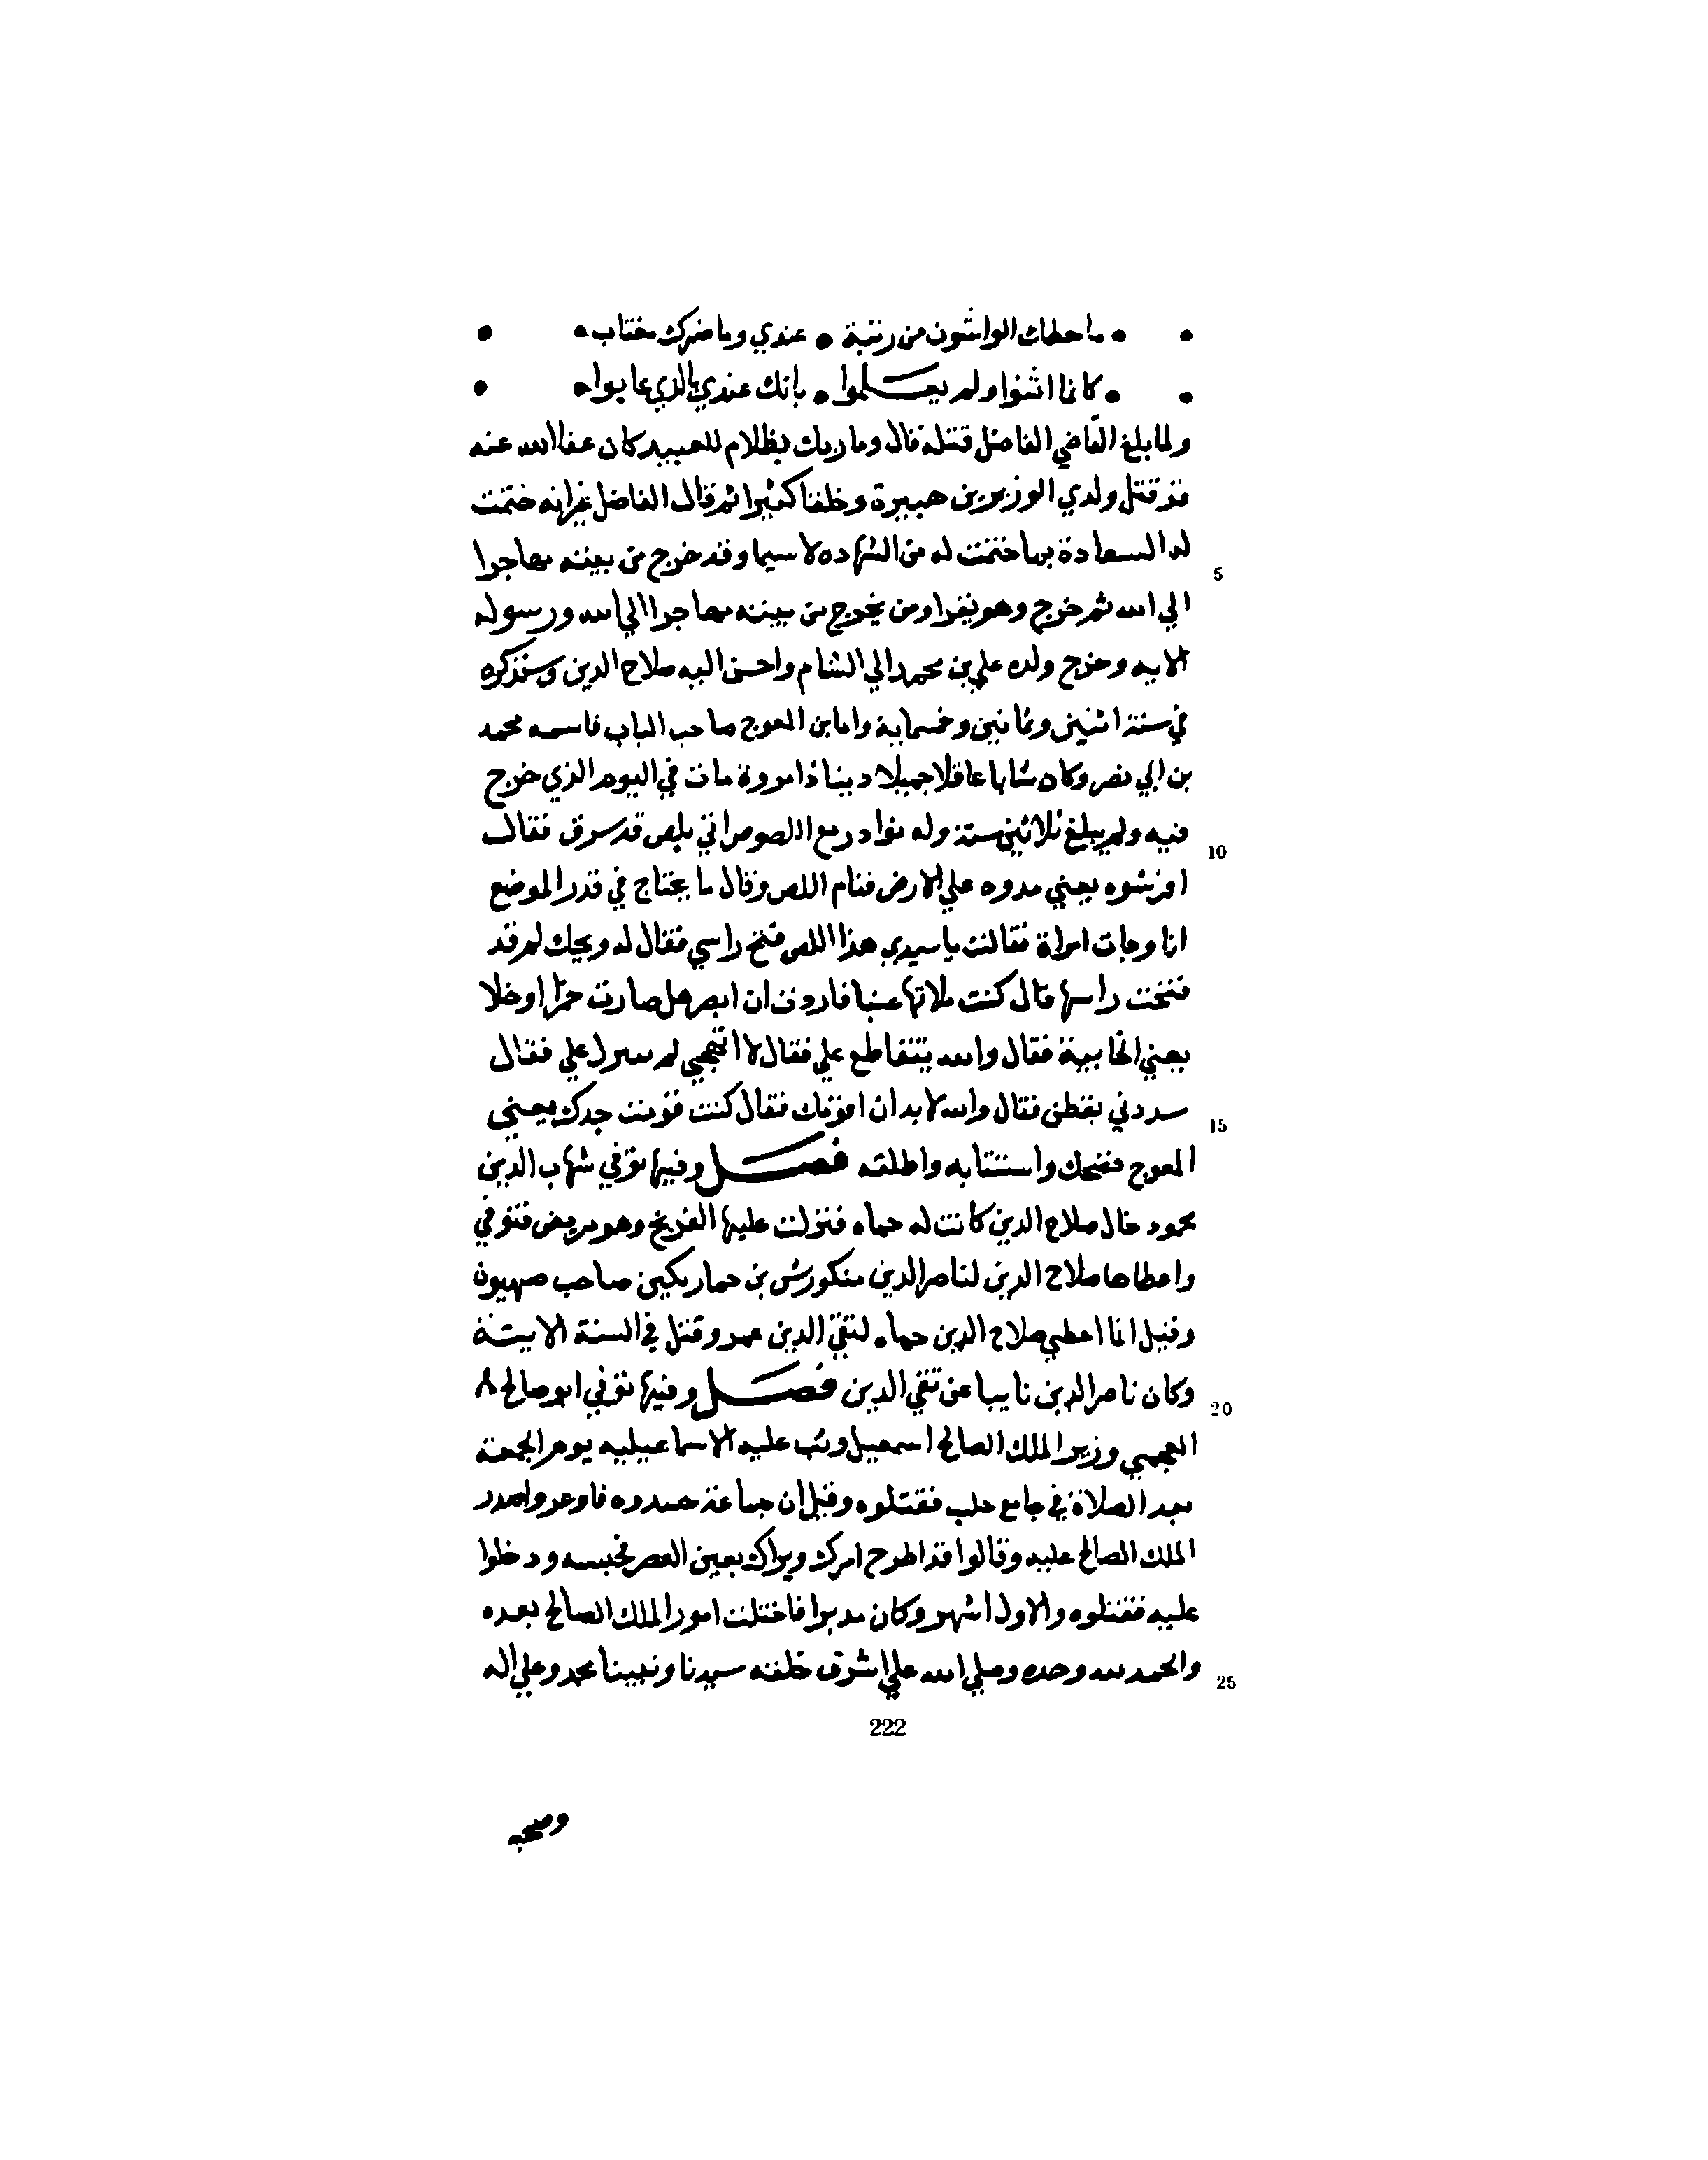 • • ما حطك الواشون من رتبة • عندي وما ضرك مغتاب • •
• • كانما اثنوا ولم يعلموا • بانك عندي بالذي عابوا • •
ولما بلغ القاضي الفاضل قتله قال وما ربك بظلام للعبيد كان عفا الله عنه
قد قتل ولدي الوزير بن هبيرة وخلفا كثيرا ثم قال الفاضل غير انه ختمت
له السعادة بما ختمت له من الشهاده لا سيما وقد خرج من بيته مهاجرا
5
الي الله ثم خرج وهو يقرا ومن يخرج من بيته مهاجرا الي الله ورسوله
الايه وخرج ولده علي بن محمد الي الشام واحسن اليه صلاح الدين وسنذكره
في سنة اثنين وثمانين وخسماية واما بن المعوج صاحب الباب فاسمه محمد
بن ابي نصر وكان شابا عاقلا جميلا دينا ذا مروة مات في اليوم الذي خرج
فيه ولم يبلغ ثلاثين سنة وله نوادر مع اللصوص اتي بلص قد سرق فقال
10
افرشوه يعني مدوه علي الارض فنام اللص وقال ما يحتاج في قدر الموضع
انا وجات امراة فقالت يا سيدي هذا اللص فتح راسي فقال له ويحك لم قد
فتحت راسها قال كنت ملاتها عنبا فاردت ان ابصر هل صارت خمرا او خلا
يعني الخابية فقال والله يتقاطع علي فقال لا انتجمي لم علي فقال
بقطن فقال والله لا بد ان اقومك فقال كنت قومت جدك يعني
15
المعوج فضحك واستتابه واطلقه فصل وفيها توفي شهاب الدين
محمود خال صلاح الدين كانت له حماه فنزلت عليها الفرنج وهو مريض فتوفي
واعطاها صلاح الدين لناصر الدين منكورش بن خمارتكين صاحب صهيون
وقيل انما اعطي صلاح الدين حماه لتقي الدين عمر وقتل في السنة الاتية
وكان ناصر الدين نايبا عن تقي الدين فصل وفيها توفي ابو صالح
20
العجمي وزير الملك الصالح اسمعيل وثب عليه الاسماعيليه يوم الجمعة
بعد الصلاة في جامع حلب فقتلوه وقيل ان جماعة حسدوه فاوغروا صدر
الملك الصالح عليه وقالوا قد اطرح امرك ويراك بعين فحبسه ودخلوا
عليه فقتلوه والاول اشهر وكان مدبرا فاختلت امور الملك الصالح بعده
والحمد لله وحده وصلي الله علي اشرف خلقه سيدنا ونبينا محمد وعلي اله
25
222
وصحبه